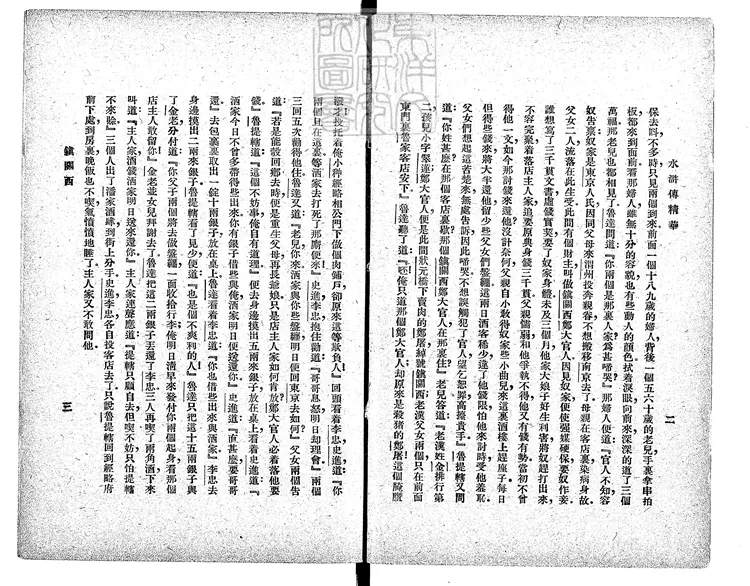 水滸傳精華
二
保去。不多時，只見兩個到來：前面一個十八九歲的婦人，背後一個五六十歲的老兒，手裏拿串拍
板，都來到面前。看那婦人，雖無十分的容貌，也有些動人的顏色，拭着淚眼，向前來，深深的道了三個
萬福。那老兒也都相見了。魯達問道：『你兩個是那裏人家？爲甚啼哭？』那婦人便道：『官人不知，容
奴告稟：奴家是東京人氏，因同父母來渭州，投奔親眷，不想搬移南京去了。母親在客店裏染病身故。
父女二人，流落在此生受。此間有個財主，叫做鎮關西鄭大官人，因見奴家，便使强媒硬保，要奴作妾。
誰想寫了三千貫文書，虛錢實契，要了奴家身體。未及三個月，他家大娘子好生利害，將奴趕打出來，
不容完聚，着落店主人家，追要原典身錢三千貫。父親懦弱，和他爭執不得。他又有錢有勢。當初不曾
得他一文，如今那討錢來還他？沒計奈何，父親自小教得奴家些小曲兒，來這裏酒樓上趕座子。每日
但得些錢來，將大半還他；留些少父女們盤纏。這兩日，酒客稀少，違了他錢限，怕他來討時，受他羞恥。
父女們想起這苦楚來，無處告訴，因此啼哭。不想誤觸犯了官人，望乞恕罪，高擡貴手！』魯提轄又問
道：『你姓甚麼？在那個客店裏歇？那個鎮關西鄭大官人在那裏住？』老兒答道：『老漢姓金，排行第
二。孩兒小字翠蓮。鄭大官人便是此間狀元橋下賣肉的鄭屠，綽號鎮關西。老漢父女兩個，只在前面
東門裏魯家客店安下。』魯達聽了道：『呸！俺只道那個鄭大官人，却原來是殺猪的鄭屠！這個腌臢
潑才，投托着俺小种經略相公門下，做個肉鋪戶，却原來這等欺負人！』回頭看着李忠史進道：『你
兩個且在這裏，等洒家去打死了那廝便來！』史進李忠抱住勸道：『哥哥息怒，明日却理會。』兩個
三回五次勸得他住。魯達又道：『老兒，你來！洒家與你些盤纏，明日便回東京去，如何？』父女兩個告
道：『若是能彀回鄉去時，便是重生父母，再長爺娘。只是店主人家如何肯放？鄭大官人必着落他要
錢。』魯提轄道：『這個不妨事，俺自有道理。』便去身邊摸出五兩來銀子，放在桌上，看着史進道：『
洒家今日不曾多帶得些出來；你有銀子，借些與俺，洒家明日便送還你。』史進道：『直甚麼，要哥哥
還。』去包裹裏取出一錠十兩銀子放在桌上。魯達看着李忠道：『你也借些出來與洒家。』李忠去
身邊摸出二兩來銀子。魯提轄看了，見少，便道：『也是個不爽利的人！』魯達只把這十五兩銀子與
了金老，分付道：『你父子兩個將去做盤纏，一面收拾行李。俺明日清早來發付你兩個起身，看那個
店主人敢留你！』金老並女兒拜謝去了。魯達把這二兩銀子丟還了李忠。三人再喫了兩角酒，下來
叫道：『主人家，酒錢洒家明日送來還你。』主人家連聲應道：『提轄只顧自去，但喫不妨，只怕提轄
不來賒。』三個人出了潘家酒肆，到街上分手。史進李忠各自投客店去了。只說魯提轄回到經略府
前下處，到房裏，晚飯也不喫，氣憤憤地睡了。主人家又不敢問他。
鎮關西
三